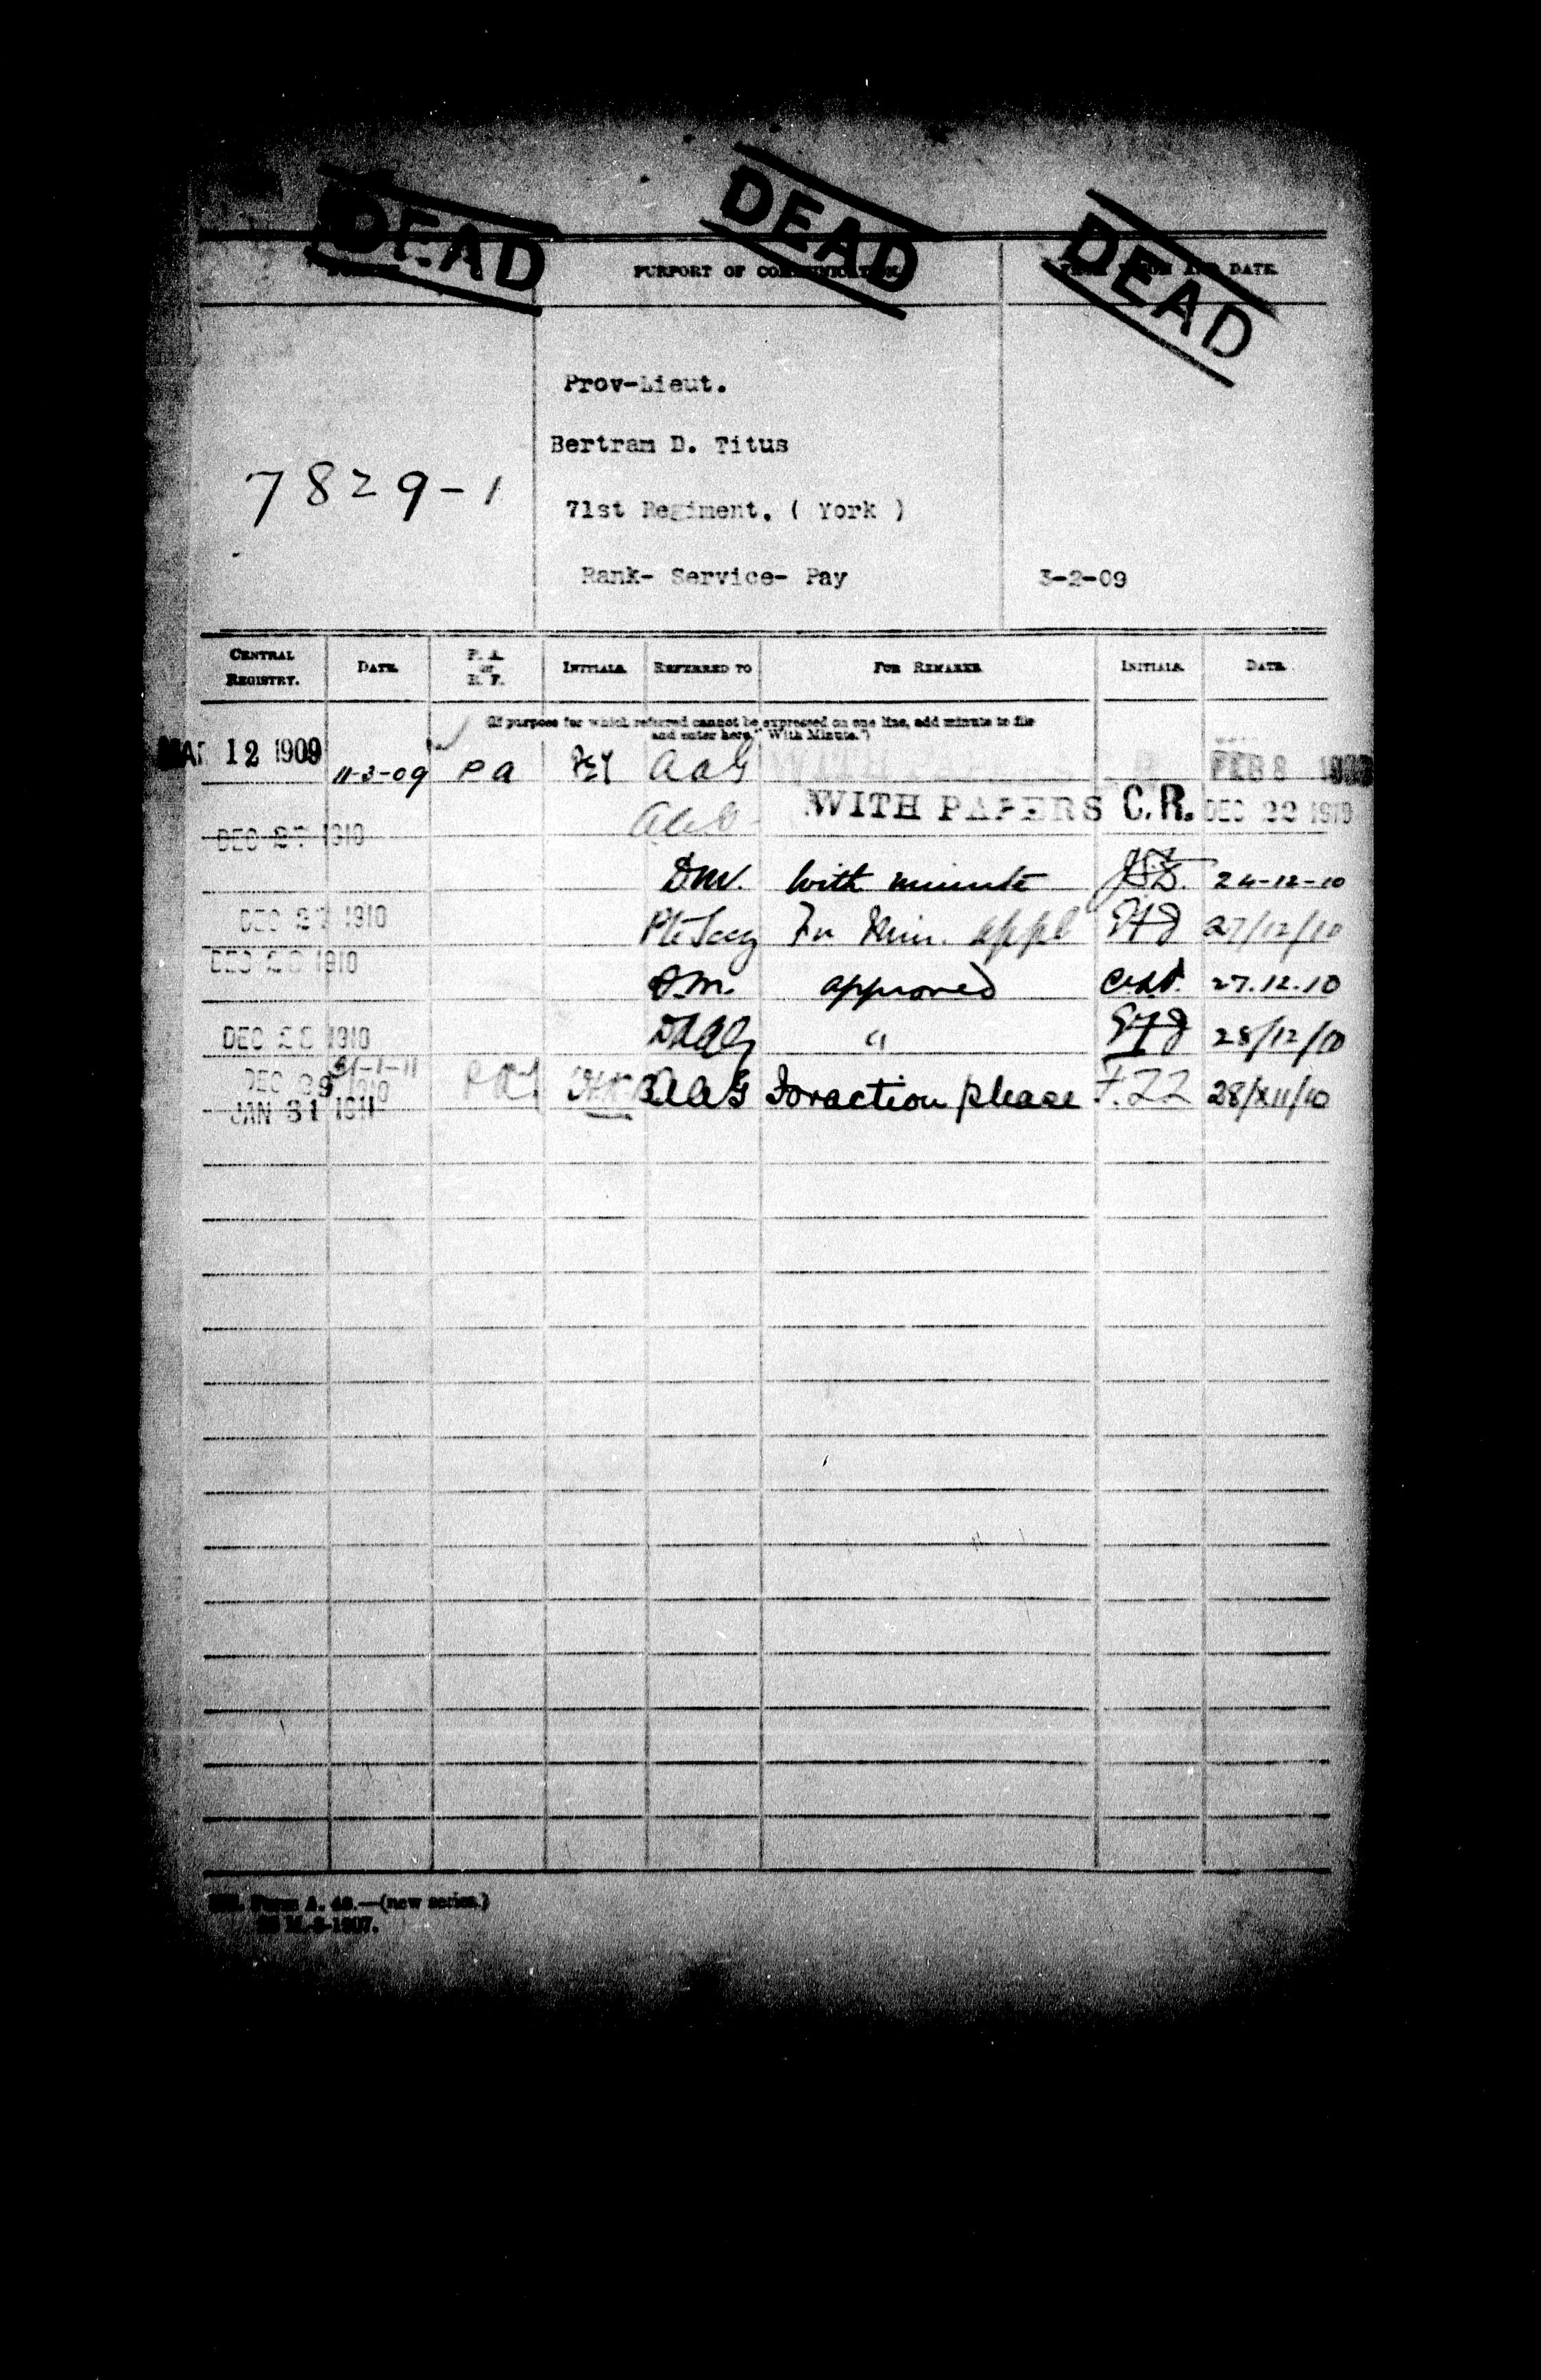 DEAD DEAD DEAD
PURPORT OF COMMUNICATION. DATE.
Prov-Lieut.
Bertram D. Titus
7829-1
71st Regiment. ( York )
Rank- Service- Pay 3-2-09
CENTRAL REGISTRY. DATE. P. A. or B. F. INITIALS. REFERRED TO FOR REMARKS INITIALS. DATE.
(If purpose for which referred cannot be expressed on one line, add minute to file
and enter here, "With Minute.")
MAR 12 1909 11-3-09 PA AAG FEB 8
WITH PAPERS C.R. DEC 22 1910
DEC 27 1910
With minute 24-12-10
DEC 27 1910 27/12/10
DEC 28 1910
D.M. approved 27.12.10
DEC 28 1910 " 28/12/10
31-1-11
DEC 29 1910 PA AAG For action please 28/XII/10
JAN 31 1911
Form A. 46.—(new series.)